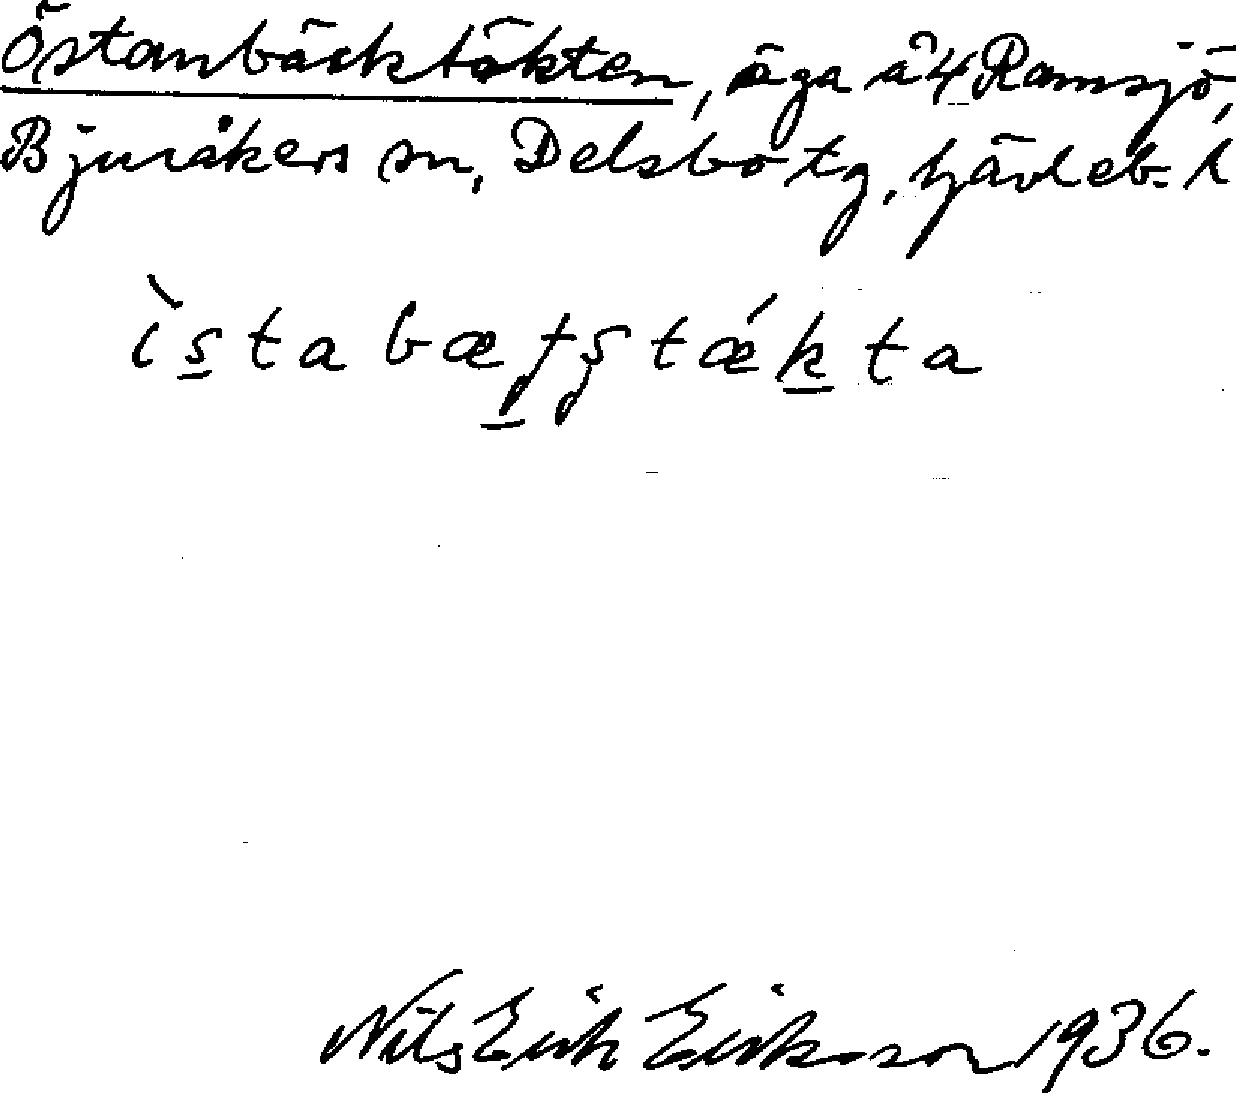 Östanbäcktäkten, äga å 4 Ramsjö,
Bjuråkers sn, Delsbo tg, Gävleb. l
Nils Erik Eriksson 1936.